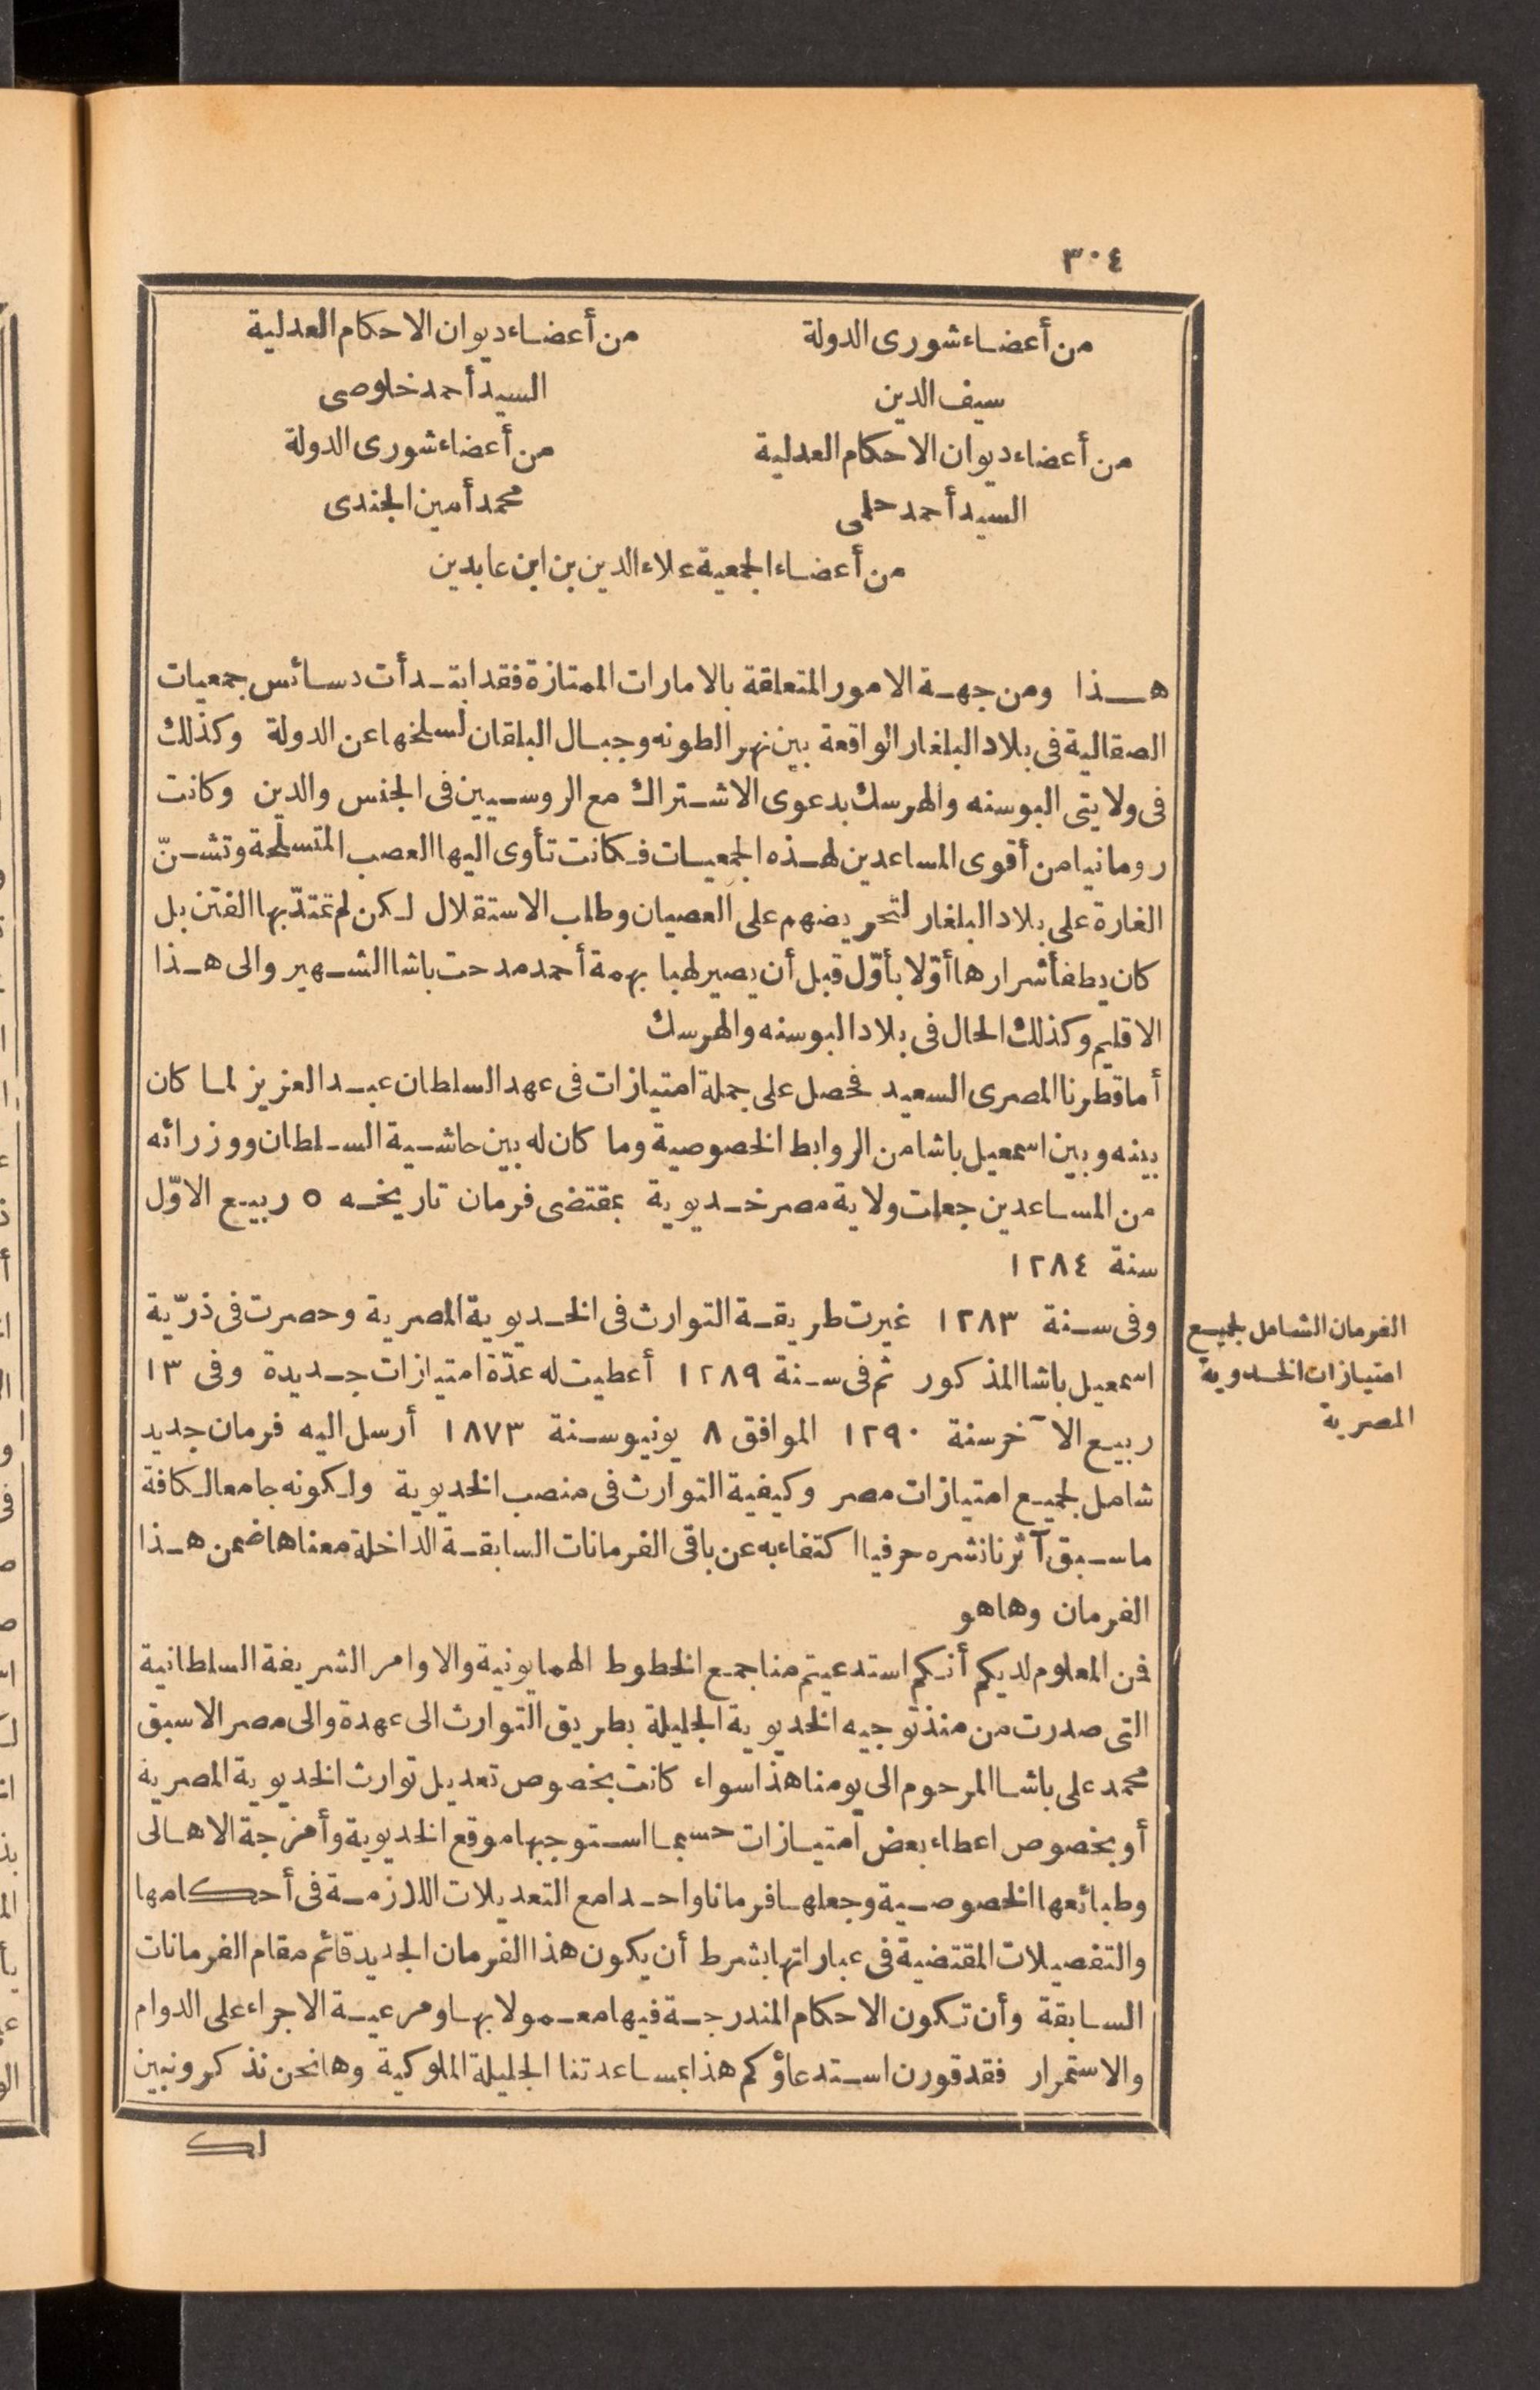 ٣٠٤
من أعضاء شورى الدولة
من أعضاء ديوان الاحكام العدلية
سيف الدين
السيد أحمد خلوصى
من أعضاء ديوان الاحكام العدلية
من أعضاء شورى الدولة
السيد أحمد حلمى
محمد أمين الجندى
من أعضاء الجمعية علاء الدين بن ابن عابدين
هذا ومن جهة الامور المتعلقة بالامارات الممتازة فقد ابتدأت دسائس جمعيات
الصقالية فى بلاد البلغار الواقعة بين نهر الطونه وجبال البلقان لسلخها عن الدولة وكذلك
فى ولايتى البوسنه والهرسك بدعوى الاشتراك مع الروسيين فى الجنس والدين وكانت
رومانيا من أقوى المساعدين لهذه الجمعيات فكانت تأوى اليها العصب المتسلحة وتشنّ
الغارة على بلاد البلغار لتحريضهم على العصيان وطلب الاستقلال لكن لم تمتدّ بها الفتن بل
كان يطفأ شرارها أوّلا بأوّل قبل أن يصير لهبا بهمة أحمد مدحت باشا الشهير والى هذا
الاقليم وكذلك الحال فى بلاد البوسنه والهرسك
أما قطرنا المصرى السعيد فحصل على جملة امتيازات فى عهد السلطان عبد العزيز لما كان
بينه وبين اسمعيل باشا من الروابط الخصوصية وما كان له بين حاشية السلطان ووزرائه
من المساعدين جعلت ولاية مصر خديوية بمقتضى فرمان تاريخه ٥ ربيع الاوّل
سنة ١٢٨٤
وفى سنة ١٢٨٣ غيرت طريقة التوارث فى الخديوية المصرية وحصرت فى ذرّية
اسمعيل باشا المذكور ثم فى سنة ١٢٨٩ أعطيت له عدّة امتيازات جديدة وفى ١٣
ربيع الآخر سنة ١٢٩٠ الموافق ٨ يونيو سنة ١٨٧٣ أرسل اليه فرمان جديد
شامل لجميع امتيازات مصر وكيفية التوارث فى منصب الخديوية ولكونه جامعا لكافة
ما سبق آثرنا نشره حرفيا اكتفاء به عن باقى الفرمانات السابقة الداخلة معناها ضمن هذا
الفرمان وها هو
فمن المعلوم لديكم أنكم استدعيتم منا جمع الخطوط الهمايونية والاوامر الشريفة السلطانية
التى صدرت من منذ توجيه الخديوية الجليلة بطريق التوارث الى عهدة والى مصر الاسبق
محمد على باشا المرحوم الى يومنا هذا سواء كانت بخصوص تعديل توارث الخديوية المصرية
أو بخصوص اعطاء بعض امتيازات حسبما استوجبها موقع الخديوية وأمزجة الاهالى
وطبائعها الخصوصية وجعلها فرمانا واحدا مع التعديلات اللازمة فى أحكامها
والتفصيلات المقتضية فى عباراتها بشرط أن يكون هذا الفرمان الجديد قائم مقام الفرمانات
السابقة وأن تكون الاحكام المندرجة فيها معمولا بها ومرعية الاجراء على الدوام
والاستمرار فقد قورن استدعاؤكم هذا بمساعدتنا الجليلة الملوكية وها نحن نذكر ونبين
لك
الفرمان الشامل لجميع
امتيازات الخدوية
المصرية